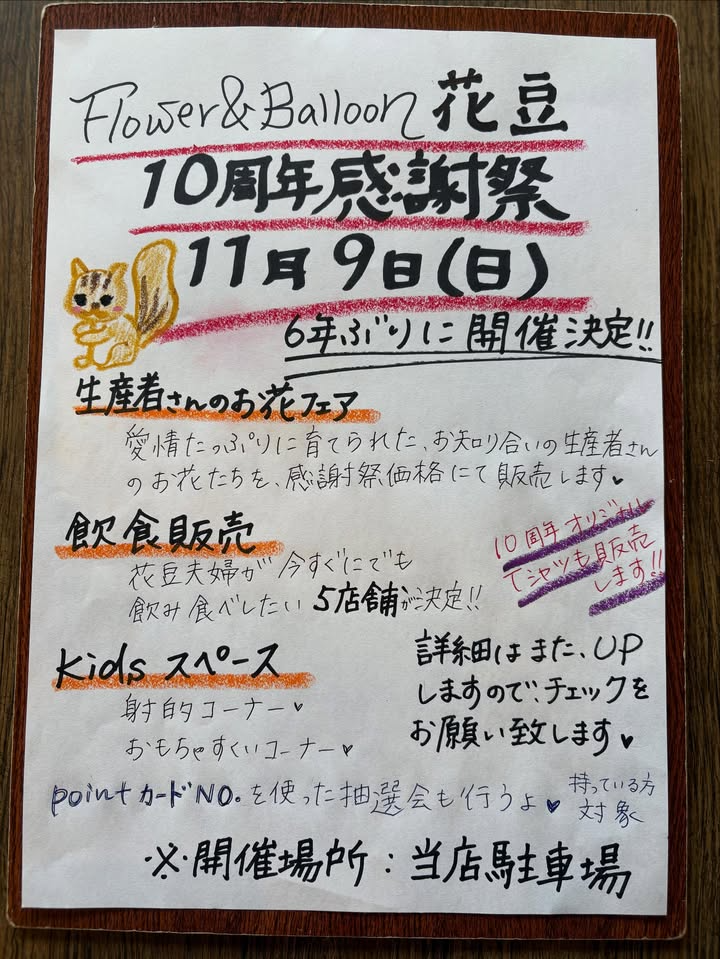 Flower&Balloon 花豆
10周年感謝祭
11月9日(日)
6年ぶりに開催決定!!
生産者さんのお花フェア
愛情たっぷりに育てられた、お知り合いの生産者さん
のお花たちを、感謝祭価格にて販売します♥
飲食販売
花豆夫婦が今すぐにでも
飲み食べしたい5店舗が決定!!
10周年オリジナル
Tシャツも販売
します!!
Kids スペース
射的コーナー♥
おもちゃすくいコーナー♥
詳細はまた、UP
しますので、チェックを
お願い致します♥
pointカードNO.を使った抽選会も行うよ♥
持っている方
対象
※開催場所：当店駐車場